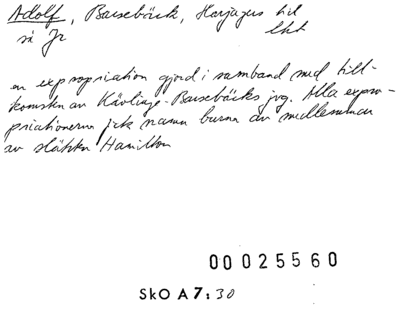 Adolf, Barsebäck, Harjagers hd
så Jr lht
en expropriation gjord i samband med till-
komsten av Kävlinge-Barsebäcks jvg. Alla expro-
priationerna fick namn burna av medlemmar
av släkten Hamilton
00025560
SkO A7:30